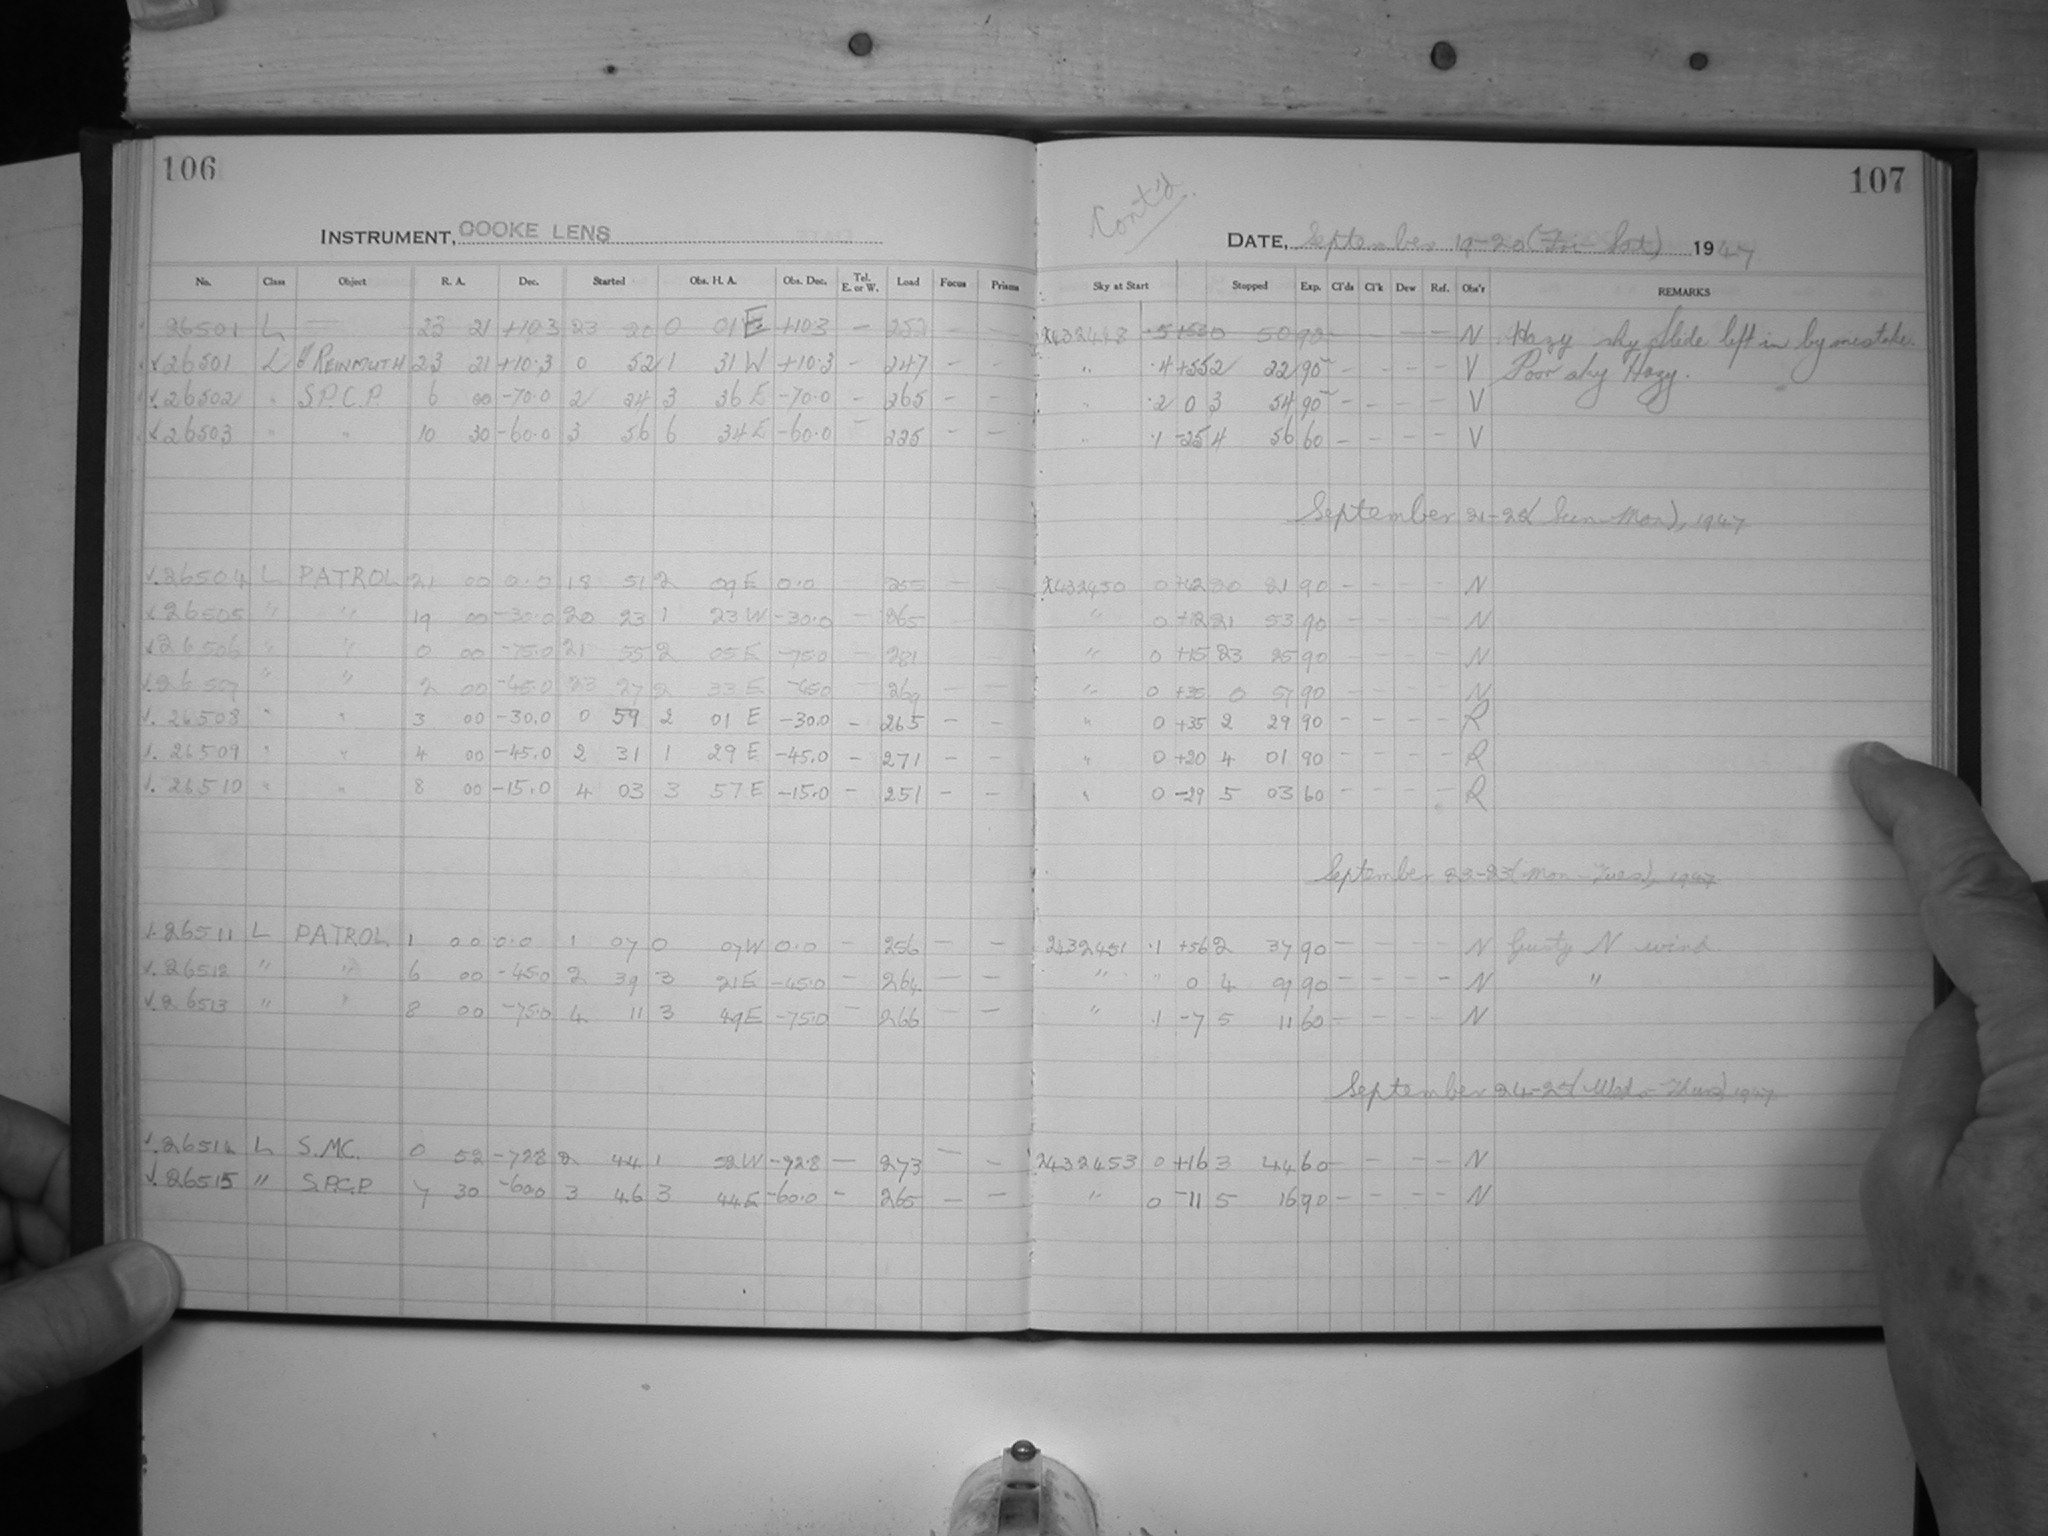 106
107
Cont'd.
INSTRUMENT, COOKE LENS
DATE, September 19-20 (Fri-Sat) 1947
No. Class Object R. A. Dec. Started Obs. H. A. Obs. Dec. Tel. E. or W. Load Focus Prisms Sky at Start Stopped Exp. Cl'ds Cl'k Dew Ref. Obs'r REMARKS
26501 L 23 21 +10.3 23 20 0 01 E +10.3 - 252 - - 2432448 .5 +53 0 50 90 - - - - N Hazy sky Slide left in by mistake.
√26501 L REINMUTH 23 21 +10.3 0 52 1 31 W +10.3 - 247 - - " .4 +55 2 22 90 - - - - V Poor sky Hazy.
√.26502 " S.P.C.P. 6 00 -70.0 2 24 3 36 E -70.0 - 265 - - " .2 0 3 54 90 - - - - V
√26503 " " 10 30 -60.0 3 56 6 34 E -60.0 - 225 - - " .1 -25 4 56 60 - - - - V
September 21-22 (Sun-Mon), 1947
√.26504 L PATROL 21 00 0.0 18 51 2 09 E 0.0 - 255 - - 2432450 0 +12 20 21 90 - - - - N
√26505 " " 19 00 -30.0 20 23 1 23 W -30.0 - 265 - - " 0 +12 21 53 90 - - - - N
√26506 " " 0 00 -75.0 21 55 2 05 E -75.0 - 281 - - " 0 +15 23 25 90 - - - - N
√.26507 " " 2 00 -45.0 23 27 2 33 E -45.0 - 269 - - " 0 +35 0 57 90 - - - - N
√. 26508 " " 3 00 -30.0 0 59 2 01 E -30.0 - 265 - - " 0 +35 2 29 90 - - - - R
√. 26509 " " 4 00 -45.0 2 31 1 29 E -45.0 - 271 - - " 0 +20 4 01 90 - - - - R
√. 26510 " " 8 00 -15.0 4 03 3 57 E -15.0 - 251 - - " 0 -29 5 03 60 - - - - R
September 22-23 (Mon-Tues), 1947
√.26511 L PATROL 1 00 0.0 1 07 0 07 W 0.0 - 256 - - 2432451 .1 +56 2 37 90 - - - - N Gusty N wind
√.26512 " " 6 00 -45.0 2 39 3 21 E -45.0 - 264 - - " " 0 4 09 90 - - - - N "
√.26513 " " 8 00 -75.0 4 11 3 49 E -75.0 - 266 - - " .1 -7 5 11 60 - - - - N
September 24-25 (Wed-Thurs) 1947
√.26514 L S.M.C. 0 52 -72.8 2 44 1 52 W -72.8 - 273 - - 2432453 0 +16 3 44 60 - - - - N
√.26515 " S.P.C.P. 7 30 -60.0 3 46 3 44 E -60.0 - 265 - - " 0 -11 5 16 90 - - - - N